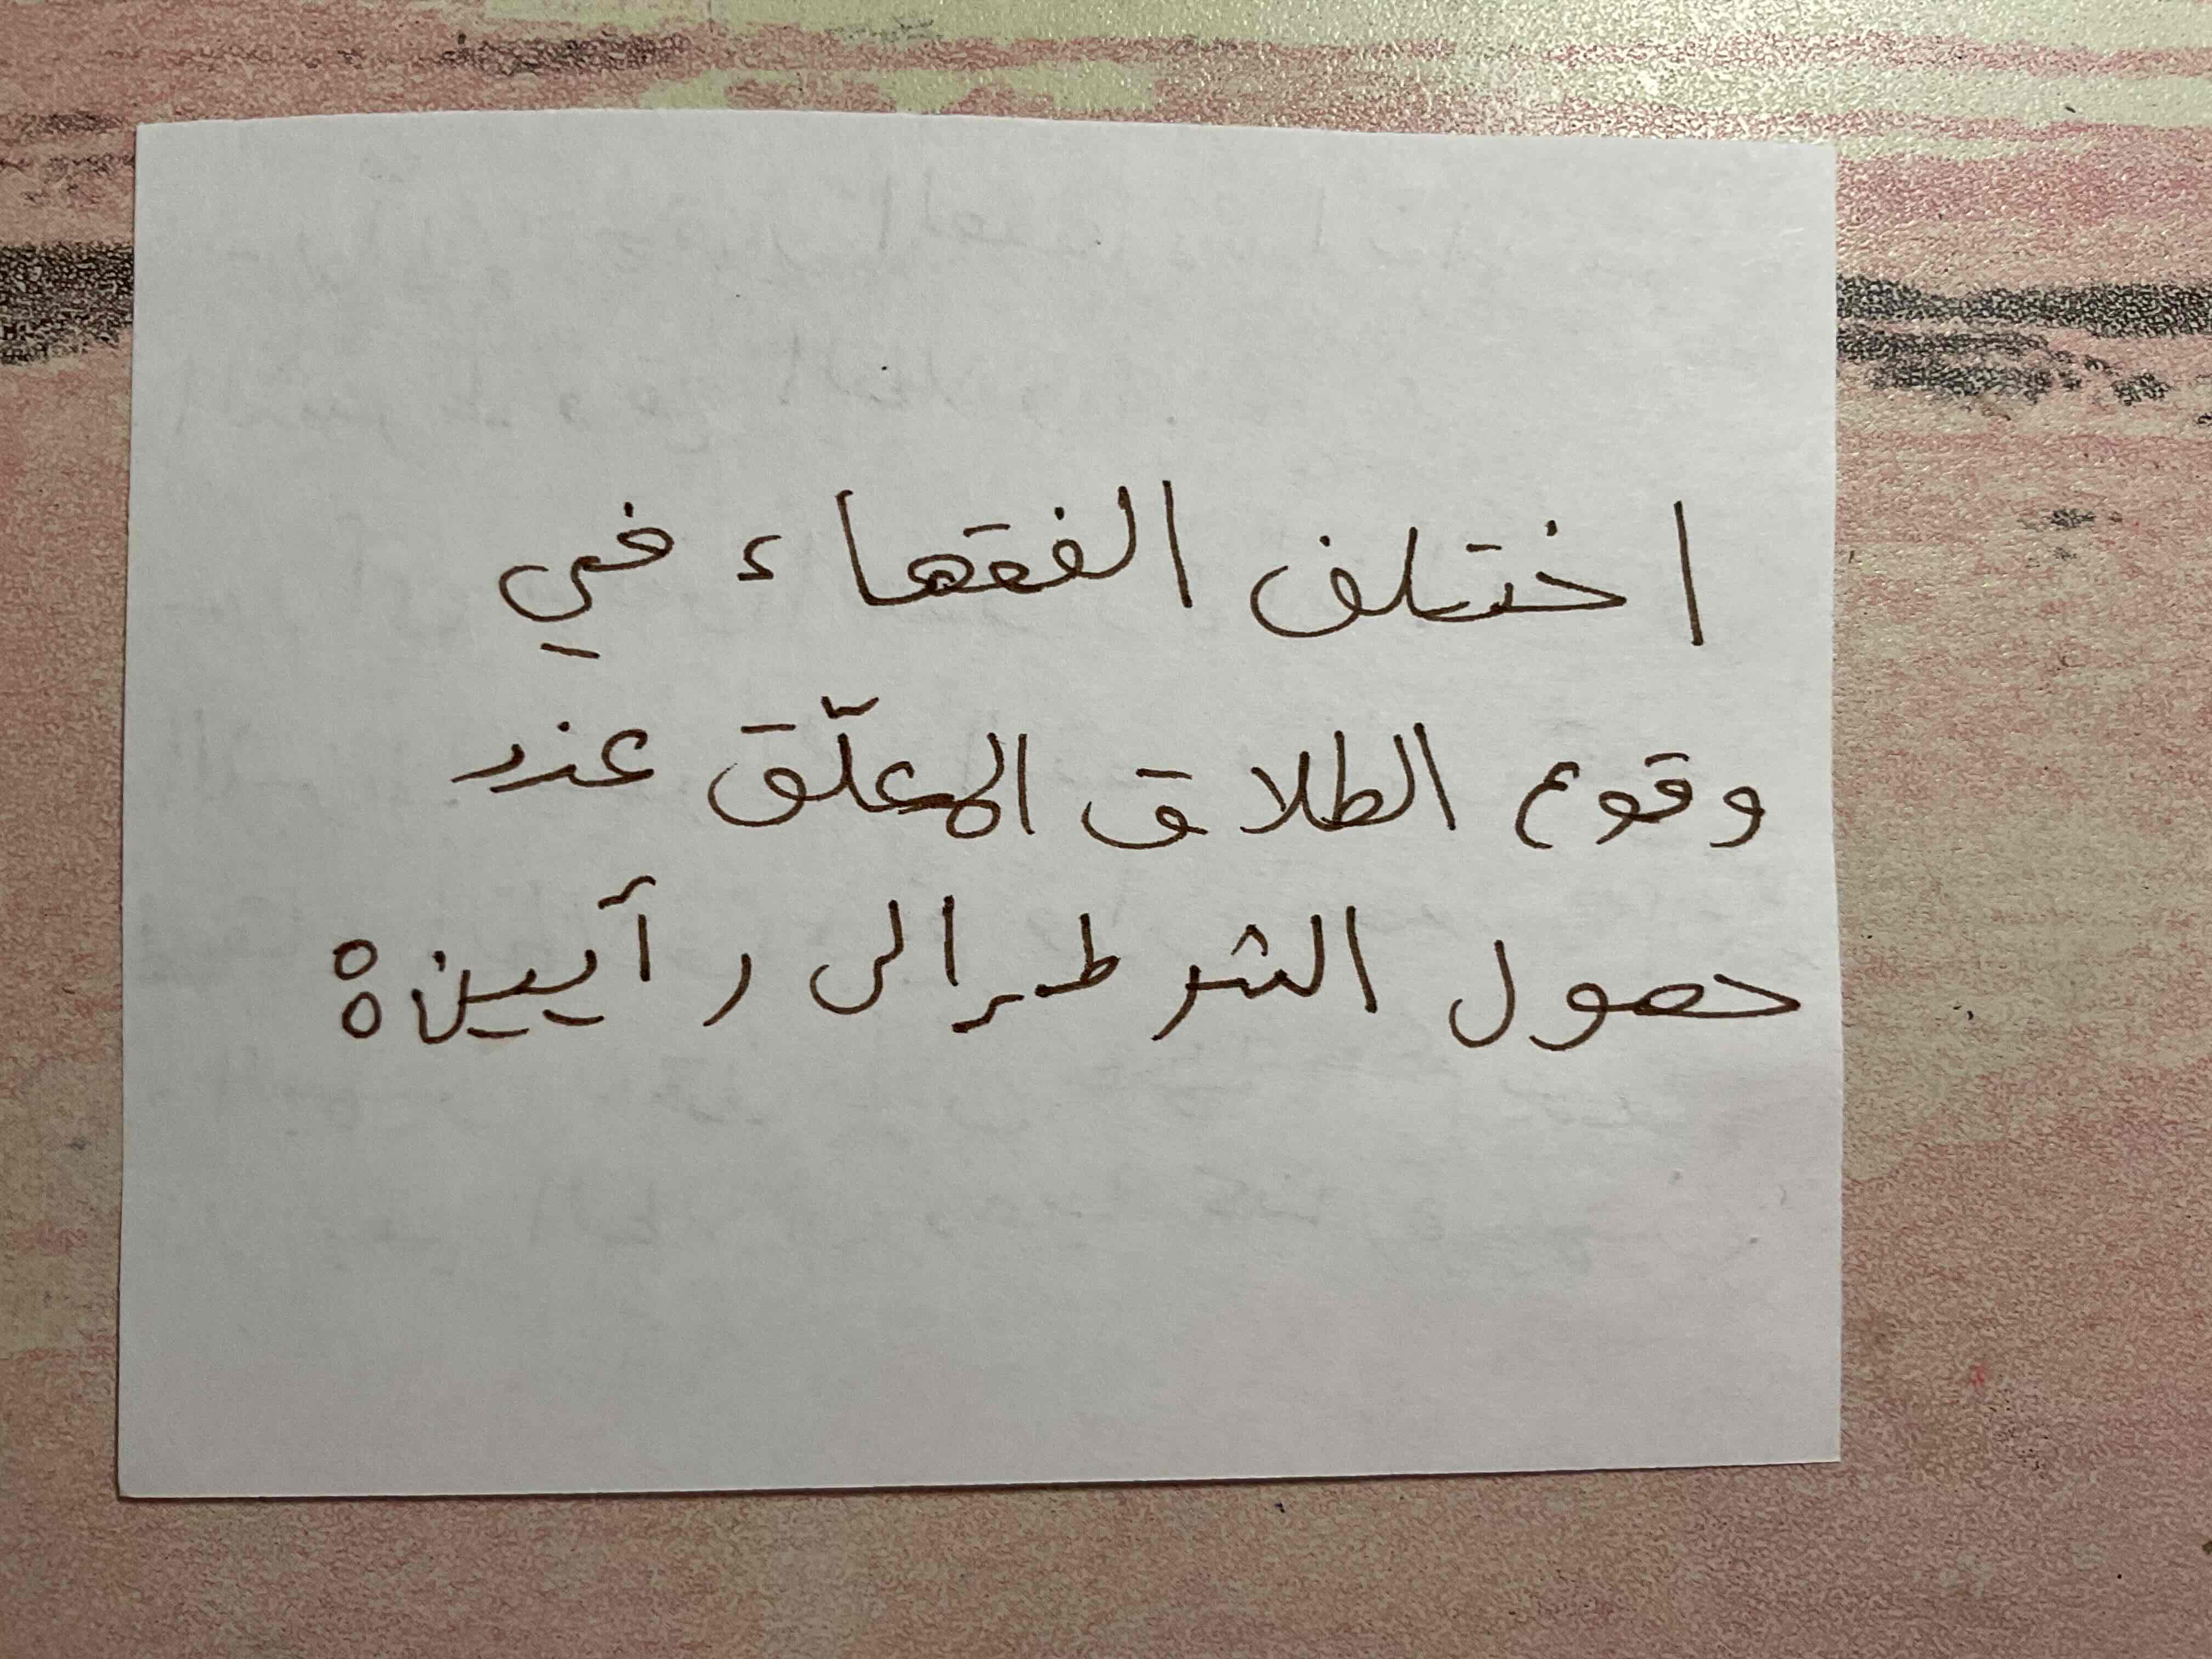 اختلف الفقهاء في
وقوع الطلاق المعلّق عند
حصول الشرط إلى رأيين: